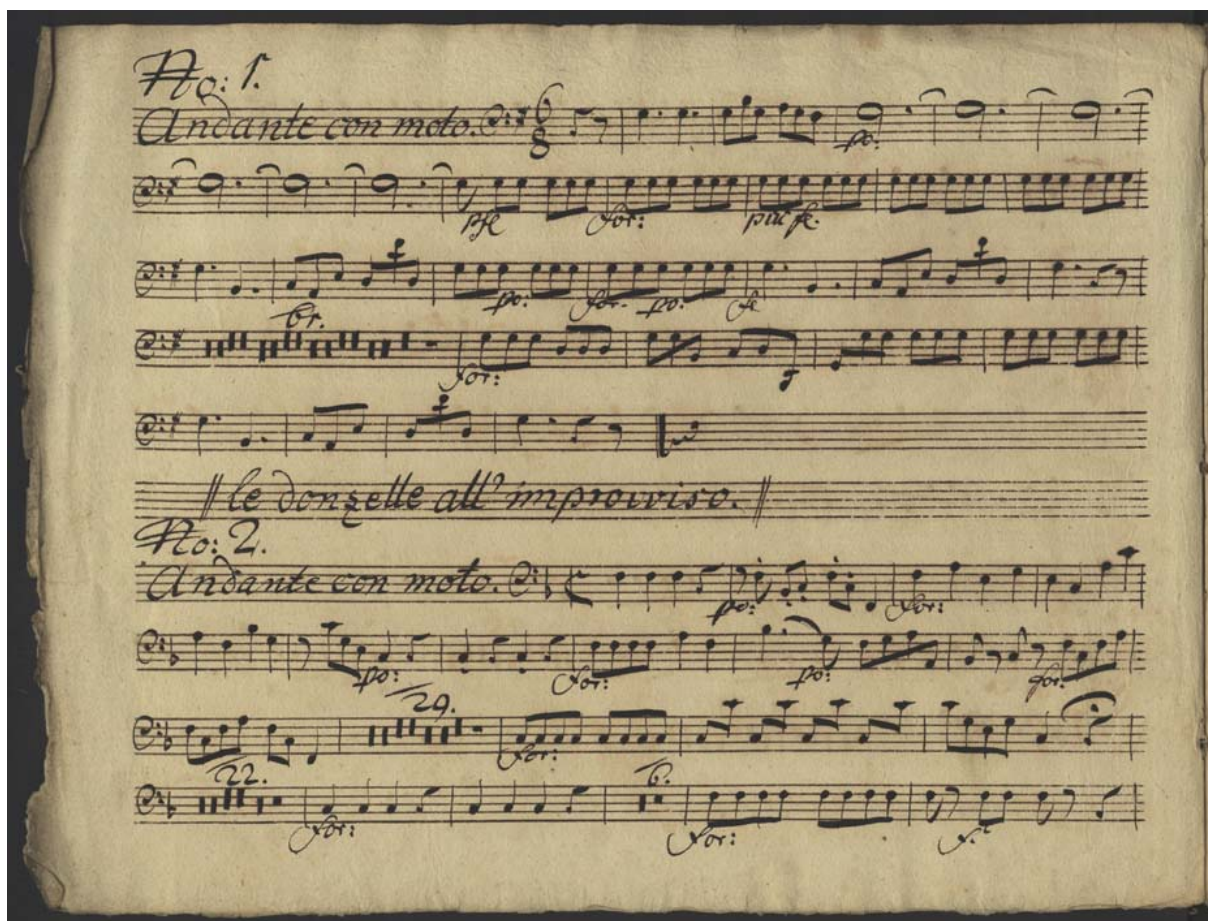 No: 1.
Andante con moto. 6/8
po:
for: piu fe.
po: for. po. fe
61.
for:
le donzelle all' improvviso.
No: 2.
Andante con moto.
po: for:
po: for: po: for:
29.
for:
22. 6.
for: for: f.